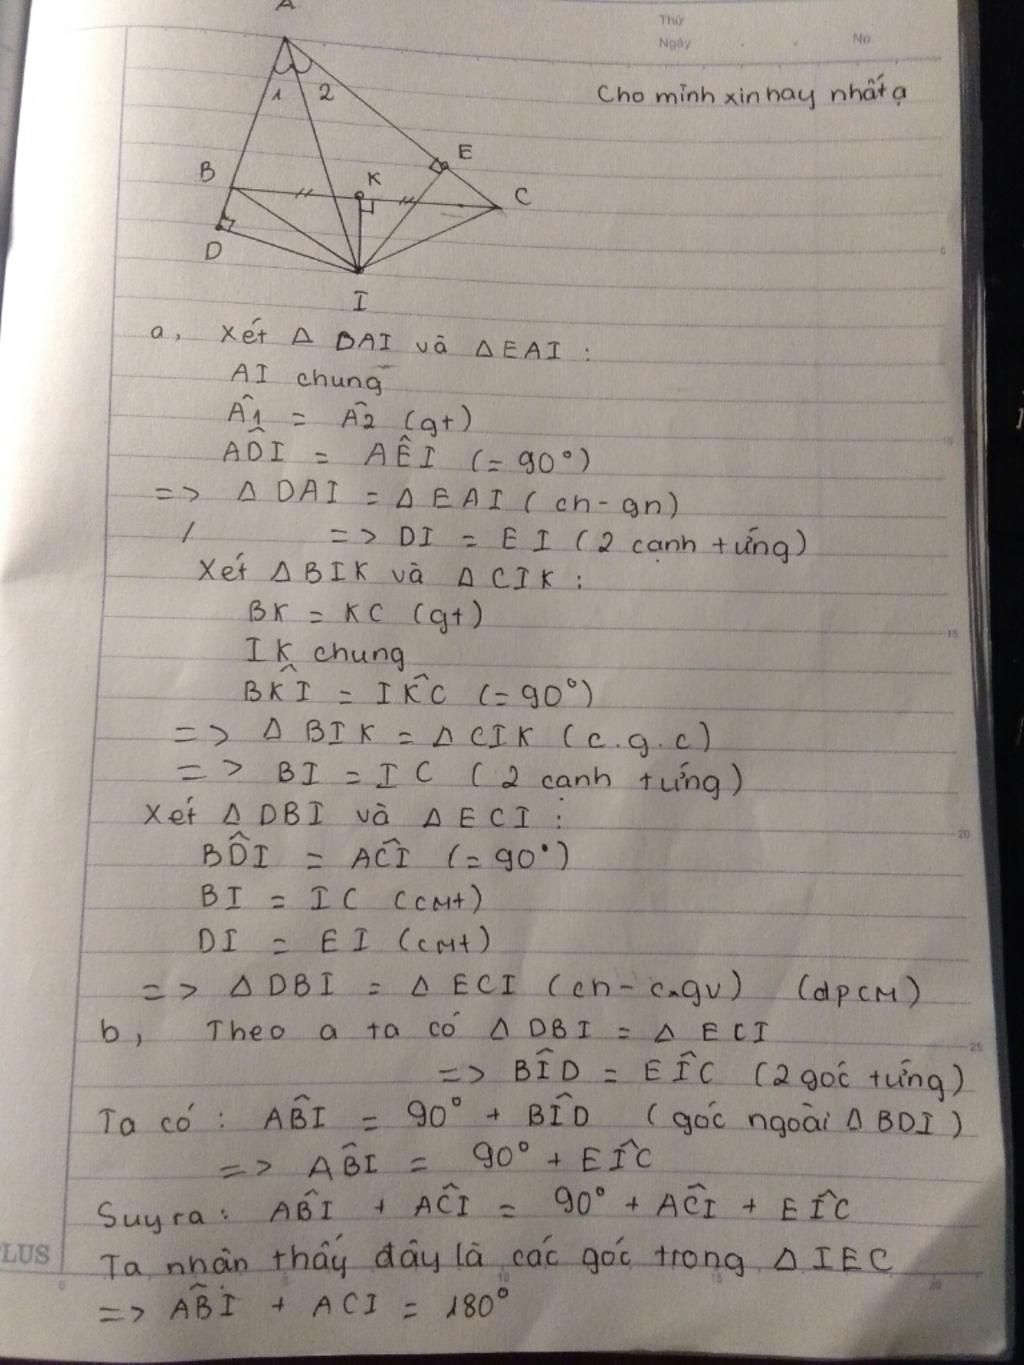 A
Thứ
Ngày
No.
1 2
Cho mình xin hay nhất ạ
E
B
K
C
D
I
a, Xét Δ DAI và ΔEAI :
AI chung
Â1 = Â2 (gt)
AD̂I = AÊI (= 90°)
=> Δ DAI = Δ EAI ( ch - gn)
=> DI = EI ( 2 cạnh tứng)
Xét ΔBIK và ΔCIK :
BK = KC (gt)
IK chung
BK̂I = IK̂C (= 90°)
=> Δ BIK = Δ CIK ( c.g.c)
=> BI = IC ( 2 cạnh tứng)
Xét Δ DBI và Δ ECI :
BD̂I = AĈI (= 90°)
BI = IC (cmt)
DI = EI (cmt)
=> Δ DBI = Δ ECI (ch - c.gv) (dpCM)
b, Theo a ta có Δ DBI = Δ ECI
=> BÎD = EÎC ( 2 góc tứng)
Ta có : AB̂I = 90° + BÎD ( góc ngoài Δ BDI )
=> AB̂I = 90° + EÎC
Suy ra: AB̂I + AĈI = 90° + AĈI + EÎC
PLUS
Ta nhận thấy đây là các góc trong Δ IEC
=> AB̂I + ACI = 180°
5
10
15
20
25
0
5
10
15
20